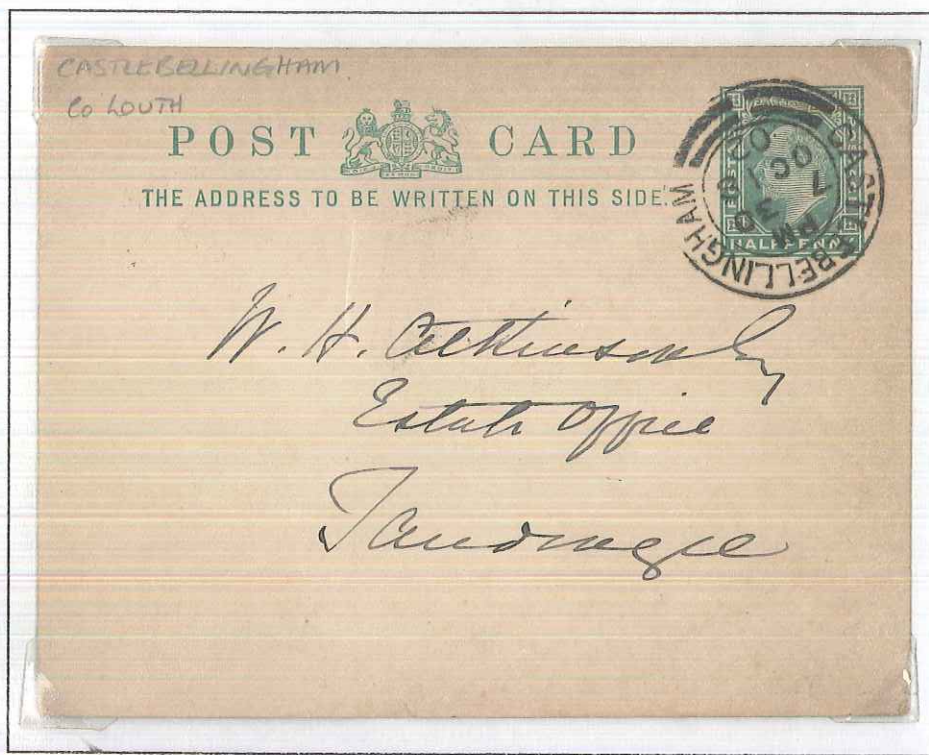 CASTLEBELLINGHAM
Co LOUTH
POST CARD
THE ADDRESS TO BE WRITTEN ON THIS SIDE.
CASTLEBELLINGHAM
PM
OC 7
02
HALFPENNY
W. H. Atkinson Esq
Estate Office
Tandragee